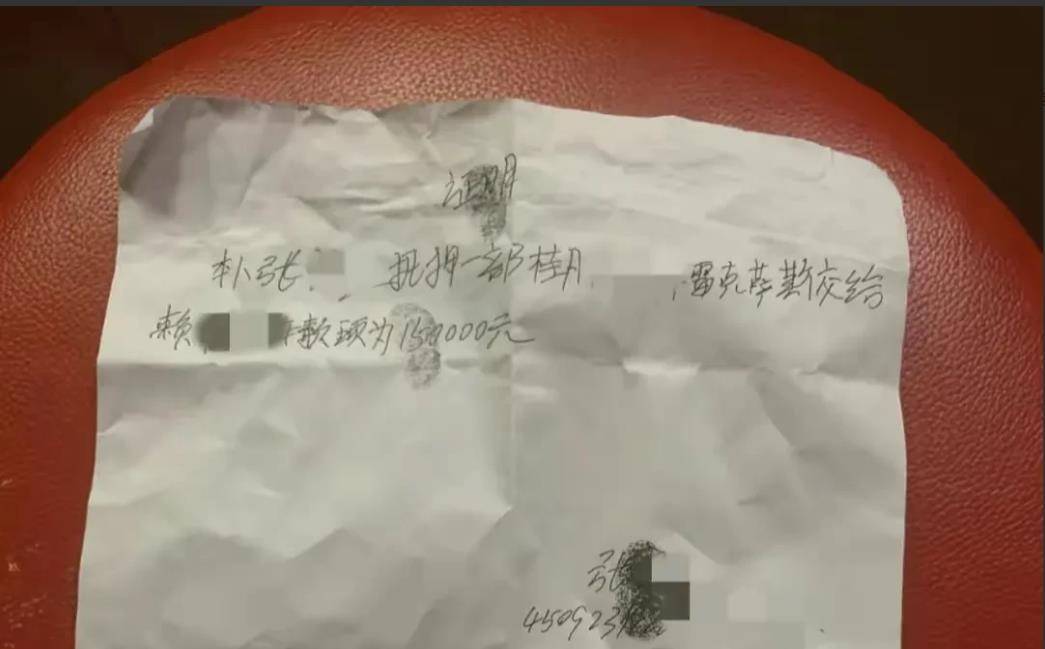 证明
本人张 抵押一部桂 雷克萨斯交给
赖 款项为150000元
张
450923